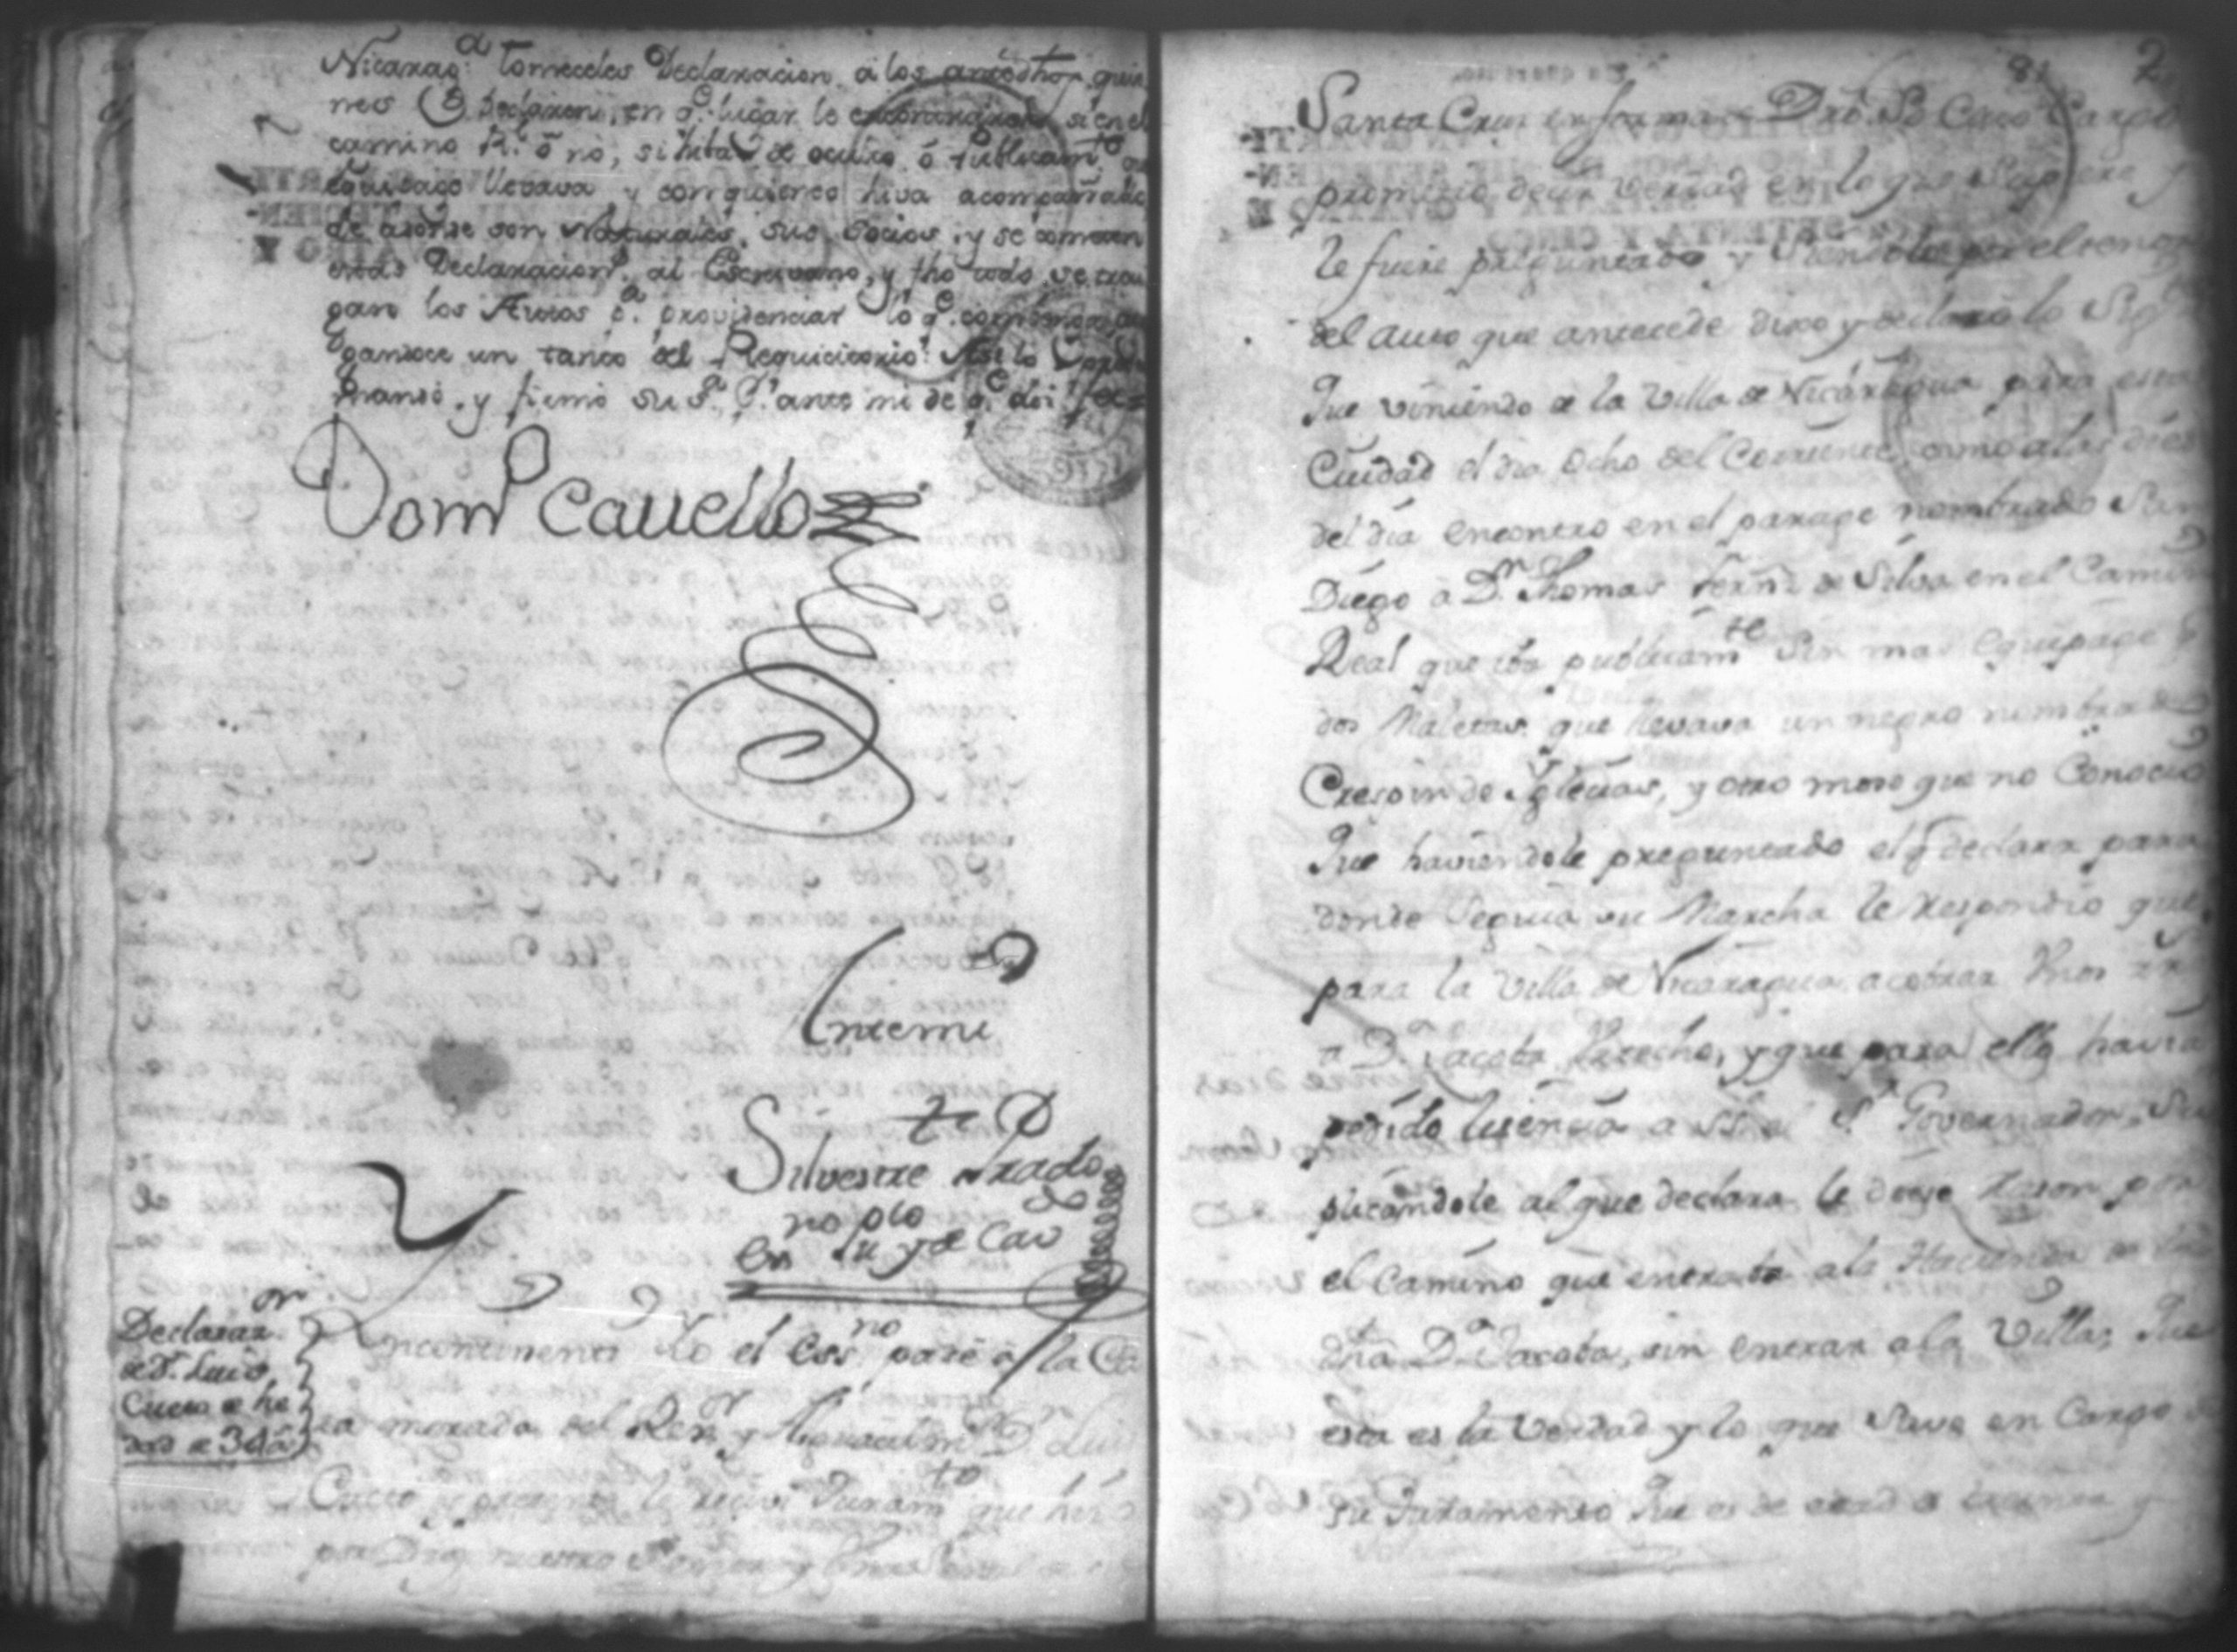 Nicarag.a tomeceles Declaracion a los antedhos, quie
nes declaren, en q.e lugar lo encontraron, si en el
camino R.l ô no, si hiba de oculto ô Publicam.te que
equipage llevava y con quienes hiva acompañado
de donde son Naturales, sus socios, y se cometen
estas Declaracion.s al Escrivano, y fho todo se trai
gan los Autos p.a providenciar lo q.e combenga,
gandose un tanto del Requicitorio. Asi lo
mando, y firmó su S.a ante mi de q.e doi fee
Dom.o Cavello
Ante mi
Silvestre
no pco
Es
Declaraz.on
de D.n Luis
Cueto de he
dad de 30 a.s
Yncontinenti Yo el Ess.no pasé a la Ca
sa morada del Rex.or y Alguacil m.r D.n Luis
Cueto de presente le recivi Juram.to que hizo
por Dios nuestro Señor y una Señal de
81 2
Santa Cruz en forma de Dro. So Cargo
prometio decir verdad en lo que supiere y
le fuere preguntado y siendolo por el tenor
del auto que antecede dixo y declaró lo Sig.te
Que viniendo de la Villa de Nicaragua para esta
Ciudad el dia ocho del Corriente como a las dies
del dia encontro en el parage nombrado San
Diego a D.n Thomas Fern.z de Silva en el Camino
Real que iba publicam.te sin mas equipage q.e
dos Maletas que llevava un negro nombrado
Crespin de Yglecias, y otro moso que no Conocio
Que haviendole preguntado el q.e declara para
donde seguia su Marcha le respondio que
para la Villa de Nicaragua a cobrar Unos rr.s
a D.a Jacoba, y que para ello havia
pedido licencia a S.S. el S.r Governador, Su
plicandole al que declara le diese razon por
el Camino que entraba a la Hacienda de la
dha D.a Jacoba, sin entrar a la Villa; Que
esta es la Verdad y lo que save en Cargo de
su Juramento Que es de edad de treinta y